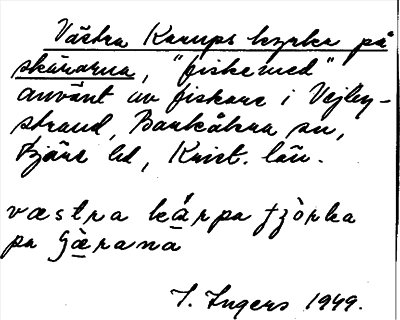 Västra Karups kyrka på
skärarna, "fiskemed"
använt av fiskare i Vejby-
strand, Barkåkra sn,
Bjäre hd, Krist. län.
væstra kárpa
pa
I. Ingers 1949.